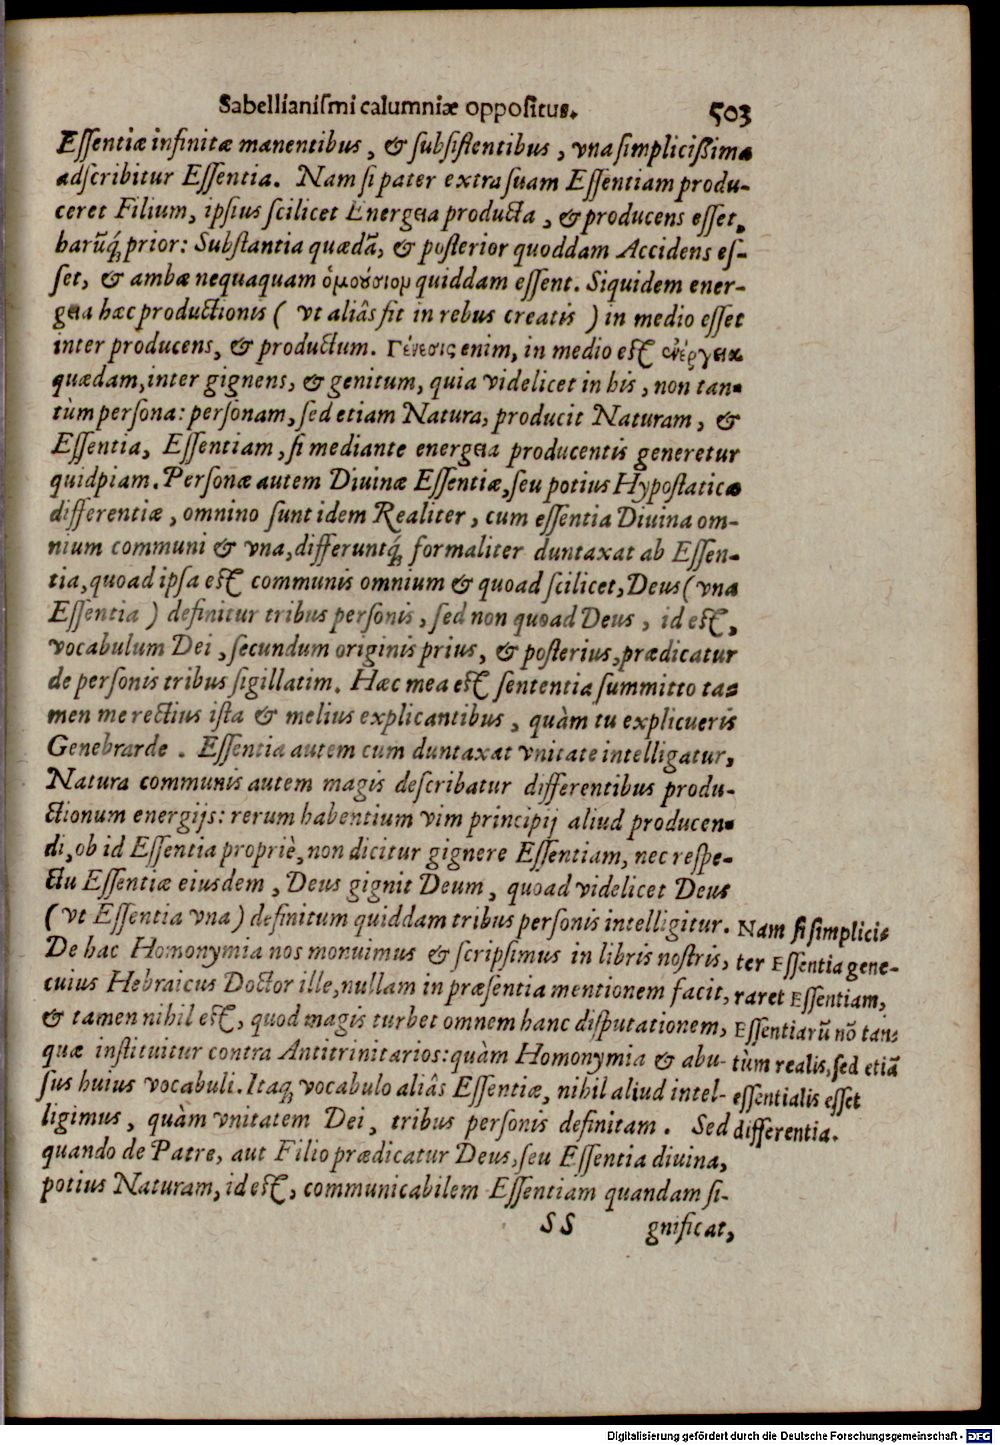 Sabellianiſmi calumniæ oppoſitus. 503
Eſſentiæ infinitæ manentibus, & ſubſiſtentibus, vna ſimplicißima
adſcribitur Eſſentia. Nam ſi pater extra ſuam Eſſentiam produ-
ceret Filium, ipſius ſcilicet Energeia producta, & producens eſſet,
harũq́ prior: Subſtantia quædã, & poſterior quoddam Accidens eſ-
ſet, & ambæ nequaquam ὁμοούσιον quiddam eſſent. Siquidem ener-
geia hæc productionis ( vt aliâs fit in rebus creatis ) in medio eſſet
inter producens, & productum. Γένεσις enim, in medio eſt ἐνέργεια
quædam, inter gignens, & genitum, quia videlicet in his, non tan-
tùm perſona: perſonam, ſed etiam Natura, producit Naturam, &
Eſſentia, Eſſentiam, ſi mediante energeia producentis generetur
quidpiam. Perſonæ autem Diuinæ Eſſentiæ, ſeu potius Hypoſtaticæ
differentiæ, omnino ſunt idem Realiter, cum eſſentia Diuina om-
nium communi & vna, differuntq́ formaliter duntaxat ab Eſſen-
tia, quoad ipſa eſt communis omnium & quoad ſcilicet, Deus (vna
Eſſentia ) definitur tribus perſonis, ſed non quoad Deus, id eſt,
vocabulum Dei, ſecundum originis prius, & poſterius, prædicatur
de perſonis tribus ſigillatim. Hæc mea eſt ſententia ſummitto ta-
men me rectius iſta & melius explicantibus, quàm tu explicueris
Genebrarde. Eſſentia autem cum duntaxat vnitate intelligatur,
Natura communis autem magis deſcribatur differentibus produ-
ctionum energijs: rerum habentium vim principij aliud producen-
di, ob id Eſſentia propriè, non dicitur gignere Eſſentiam, nec reſpe-
ctu Eſſentiæ eiusdem, Deus gignit Deum, quoad videlicet Deus
(vt Eſſentia vna) definitum quiddam tribus perſonis intelligitur.
De hac Homonymia nos monuimus & ſcripſimus in libris noſtris,
cuius Hebraicus Doctor ille, nullam in præſentia mentionem facit,
& tamen nihil eſt, quod magis turbet omnem hanc diſputationem,
quæ inſtituitur contra Antitrinitarios: quàm Homonymia & abu-
ſus huius vocabuli. Itaq́ vocabulo aliâs Eſſentiæ, nihil aliud intel-
ligimus, quàm vnitatem Dei, tribus perſonis definitam. Sed
quando de Patre, aut Filio prædicatur Deus, ſeu Eſſentia diuina,
potius Naturam, id eſt, communicabilem Eſſentiam quandam ſi-
SS gnificat,
Nam ſi ſimplici-
ter Eſſentia gene-
raret Eſſentiam,
Eſſentiarũ nõ tan-
tùm realis, ſed etiã
eſſentialis eſſet
differentia.
Digitalisierung gefördert durch die Deutsche Forschungsgemeinschaft - DFG